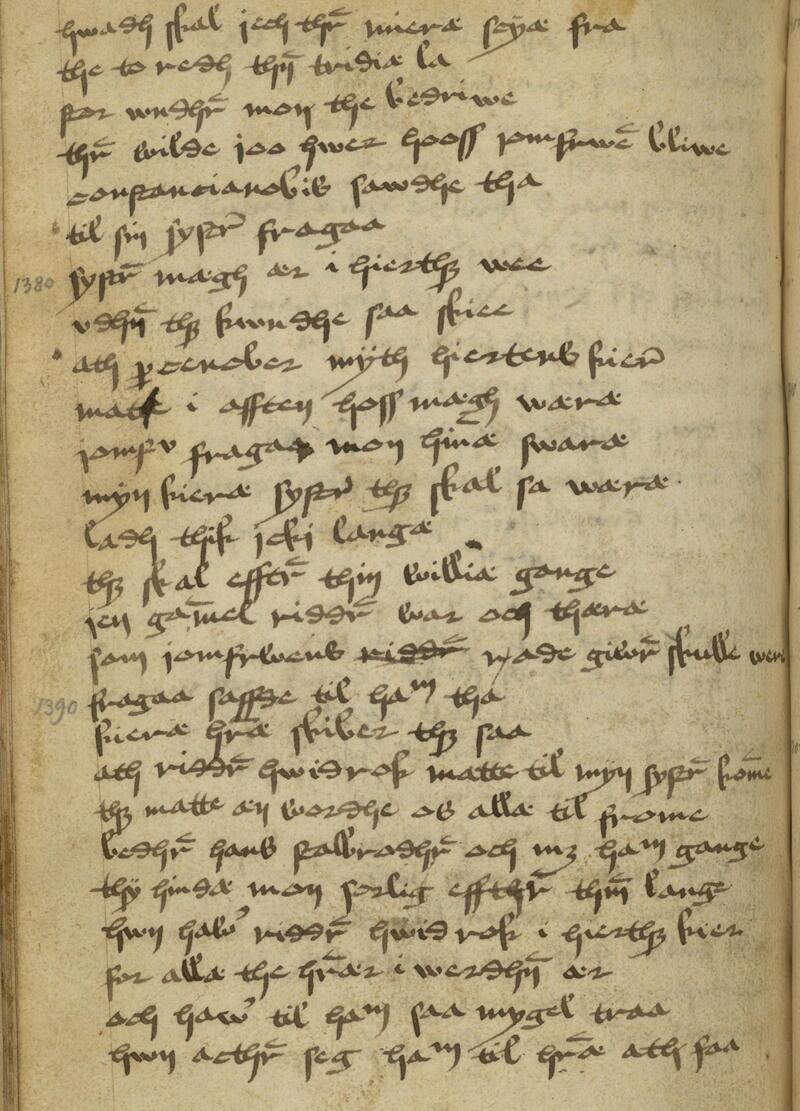 hwadh skal jech thr̄ mieræ seÿæ fra
the to redh thn̄ tridiæ la
for wndhr̄ mon the bedriwe
thr̄ wilde joo hwer hooss jomfrwē bliwe
constancianobis sawdhe tha
til sin systr̄ fragaa
1380 systr̄ mægh ær i hierthꝫ wee
vdhn̄ thꝫ kwndhe saa skiee
ath ꝑcenober mÿth hiertens kier̄
matte i afften hoss mægh wæræ
jomfv fragaa mon hīnæ swaræ
myn kieræ systr̄ thꝫ skal sa wæræ
ladh thik jcki langæ
thꝫ skal efftr̄ thin williæ gange
jen gāmel riddr̄ war och thæræ
som jomfrwens rade giwr̄ skulle wer
1390 fragaa saffde til haᵐ tha
kieræ hr̄æ skiber thꝫ saa
ath riddr̄ hwidrok matte til myn systr̄ kom̄e
thꝫ matte æn wordhe os allæ til frome
bedhr̄ hans stalbrodhr̄ och mꝫ haᵐ gange
thÿ hindæ mon sorlig effthr̄ thm̄ lange
hwn haw̉ riddr̄ hwid rok i hierthꝫ kier
for allæ the hr̄ær i werdhn̄ ær
och haw̉ til haᵐ saa mygel traa
hwn acthr̄ seg haᵐ til hr̄æ ath faa